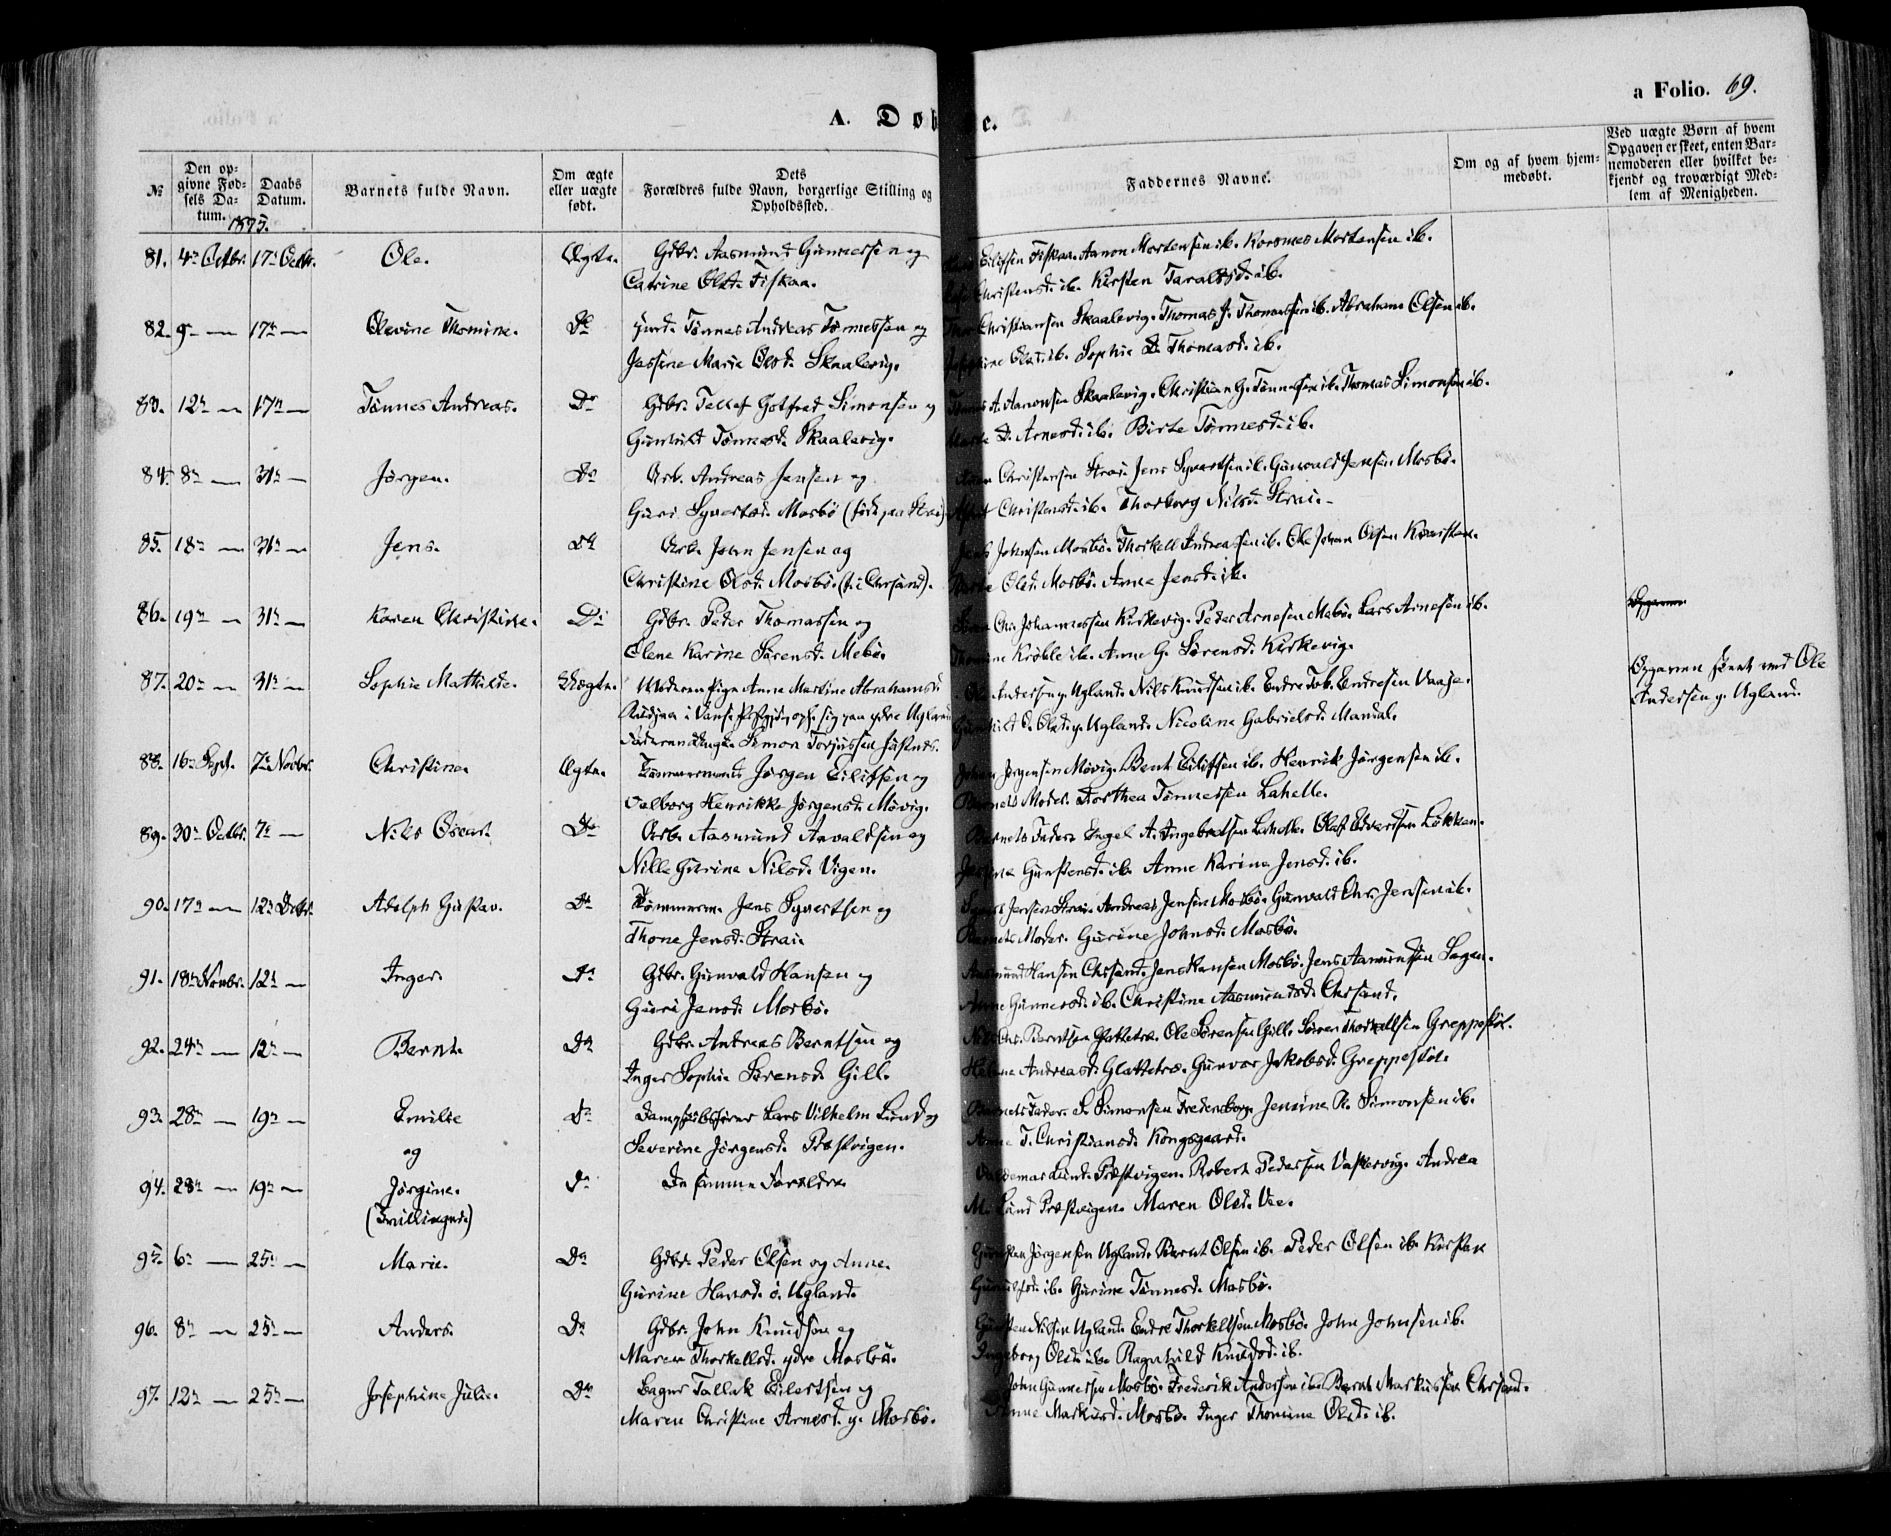 A. Døb
e.
a Folio. 69.
№
Den op-
givne Fød-
sels Da-
tum.
Daabs
Datum.
Barnets fulde Navn.
Om ægte
eller uægte
født.
Dets
Forældres fulde Navn, borgerlige Stilling og
Opholdssted.
Faddernes Navne.
Om og af hvem hjem-
medøbt.
Ved uægte Børn af hvem
Opgaven er skeet, enten Bar-
nemoderen eller hvilket be-
kjendt og troværdigt Med-
lem af Menigheden.
1875.
81. 4de Octbr. 17de Octbr. Ole. Ægte. Gdbr. Aasmund Gunnersen og
Catrine Olsd. Fiskaa.
Eilifsen Fiskaa. Aanon Mortensen ib. Rasmus Mortensen ib.
Christensd. ib. Kirsten Taraldsd. ib.
82. 9de — 17de — Olevine Thomine. Do Tønnes Andreas Tønnessen og
Jessine Marie Olsd. Skaalevig.
Christiansen Skaalevig. Thomas J. Thomassen ib. Abraham Olsen ib.
Olsd. ib. Sophie Thomasd. ib.
83. 12te — 17de — Tønnes Andreas. Do Gdbr. Tellef Gotfred Simonsen og
Gunhild Tønnesd. Skaalevig.
Tønnes A. Aanonsen Skaalevig. Christian G. Tønnesen ib. Thomas Simonsen ib.
D. Arnesd. ib. Birte Tønnesd. ib.
84. 8de — 31te — Jørgen. Do Arb. Andreas Jensen og
Guri Syvertsd. Mosbö (født paa Strai)
Christensen Strai. Jens Syvertsen ib. Gunvald Jensen Mosbö.
Christensd. ib. Thorborg Nilsd. Strai.
85. 18de — 31te — Jens. Do Arb. John Jensen og
Christine Olsd. Mosbö. (f. i Chrsand).
Jens Johnsen Mosbö. Thorkell Andreassen ib. Ole Johan Olsen
Olsd. Mosbö. Anne Jensd. ib.
86. 19de — 31te — Karen Christine. Do Gdbr. Peder Thomassen og
Olene Karine Sørensd. Mebö.
Chr. Johannessen Kirkevig. Peder Arnesen Mebö. Lars Arnesen ib.
Thomine Krøble ib. Anne G. Sørensd. Kirkevig.
Opgaven
87. 20de — 31te — Sophie Mathilde. Uægte. Moderen Pige Anne Martine Abrahamsd.
i Vanse Præstegj. oph. sig paa ydre Ugland
Simon Torjussen
Ole Andersen y. Ugland. Nils Knudsen ib. Endre Tob. Endresen Vaaje.
Gunhild O. Olsd. y. Ugland. Nicoline Gabrielsd. Mandal.
Opgaven skeet ved Ole
Andersen y. Ugland.
88. 16de Sept. 7de Novbr. Christine. Ægte. Tømmermand Jørgen Eilifsen og
Valborg Henrikke Jørgensd. Møvig.
Johan Jørgensen Møvig. Bent Eilifsen ib. Henrik Jørgensen ib.
Barnets Moder. Dorthea Tønnessen Lahelle.
89. 30te Octbr. 7de — Nils Oscar. Do Arb. Aasmund Aavaldsen og
Nille Gurine Nilsd. Vigen.
Barnets Fader. Engel A. Ingebretsen Lahelle. Oluf Edvardsen Løkken.
Gunstensd. ib. Anne Karine Jensd. ib.
90. 17de — 12te Decbr. Adolph Gustav. Do Tømmerm. Jens Syvertsen og
Thone Jensd. Strai.
Syvert Jensen Strai. Andreas Jensen Mosbö. Gunvald Chr. Jensen ib.
Barnets Moder. Gurine Johnsd. Mosbö.
91. 18de Novbr. 12te — Inger. Do Gdbr. Gunvald Hansen og
Guri Jensd. Mosbö.
Aasmund Hansen Chrsand. Jens Hansen Mosbö. Jens Aasmundsen Sagen.
Anne Gunnersd. ib. Christine Aasmundsd. Chrsand.
92. 24de — 12te — Bernt. Do Gdbr. Andreas Berntsen og
Inger Sophie Sørensd. Gill.
Berntsen Glattetre. Ole Sørensen Gill. Søren Thorkellsen Greppestøl.
Helene Andreasd. Glattetre. Gunvor Jakobsd. Greppestøl.
93. 28de — 19de — Emilie
og
Do Dampskibsfører Lars Vilhelm Lund og
Severine Jørgensd. Præstvigen.
Barnets Fader. S. Simonsen Fredensborg. Jensine R. Simonsen ib.
Anne T. Christiansd. Kongsgaard.
94. 28de — 19de — Jørgine.
(Tvillinger)
Do De samme Forældre
Valdemar Lund. Præstvigen. Robert Pedersen Vaskervig. Andrea
M. Lund Præstvigen. Maren Olsd. Vee.
95. 6te — 25de — Marie. Do Gdbr. Peder Olsen og Anne
Gurine Hansd. ö. Ugland.
Gunsten Jørgensen Ugland. Bernt Olsen ib. Peder Olsen ib. Kirsten
ib. Gurine Tønnesd. Mosbö.
96. 8de — 25de — Anders. Do Gdbr. John Knudsen og
Maren Thorkellsd. ydre Mosbö.
Gunsten Nilsen Ugland. Endre Thorkellsen Mosbö. John Johnsen ib.
Ingeborg Olsd. ib. Ragnhild Knudsd. ib.
97. 12te — 25de — Josephine Julie. Do Bager Tallak Eilertsen og
Maren Christine Arnesd. y. Mosbö.
John Gunnersen Mosbö. Frederik Andersen ib. Bernt Markussen Chrsand.
Anne Markusd. Mosbö. Inger Thomine Olsd. ib.